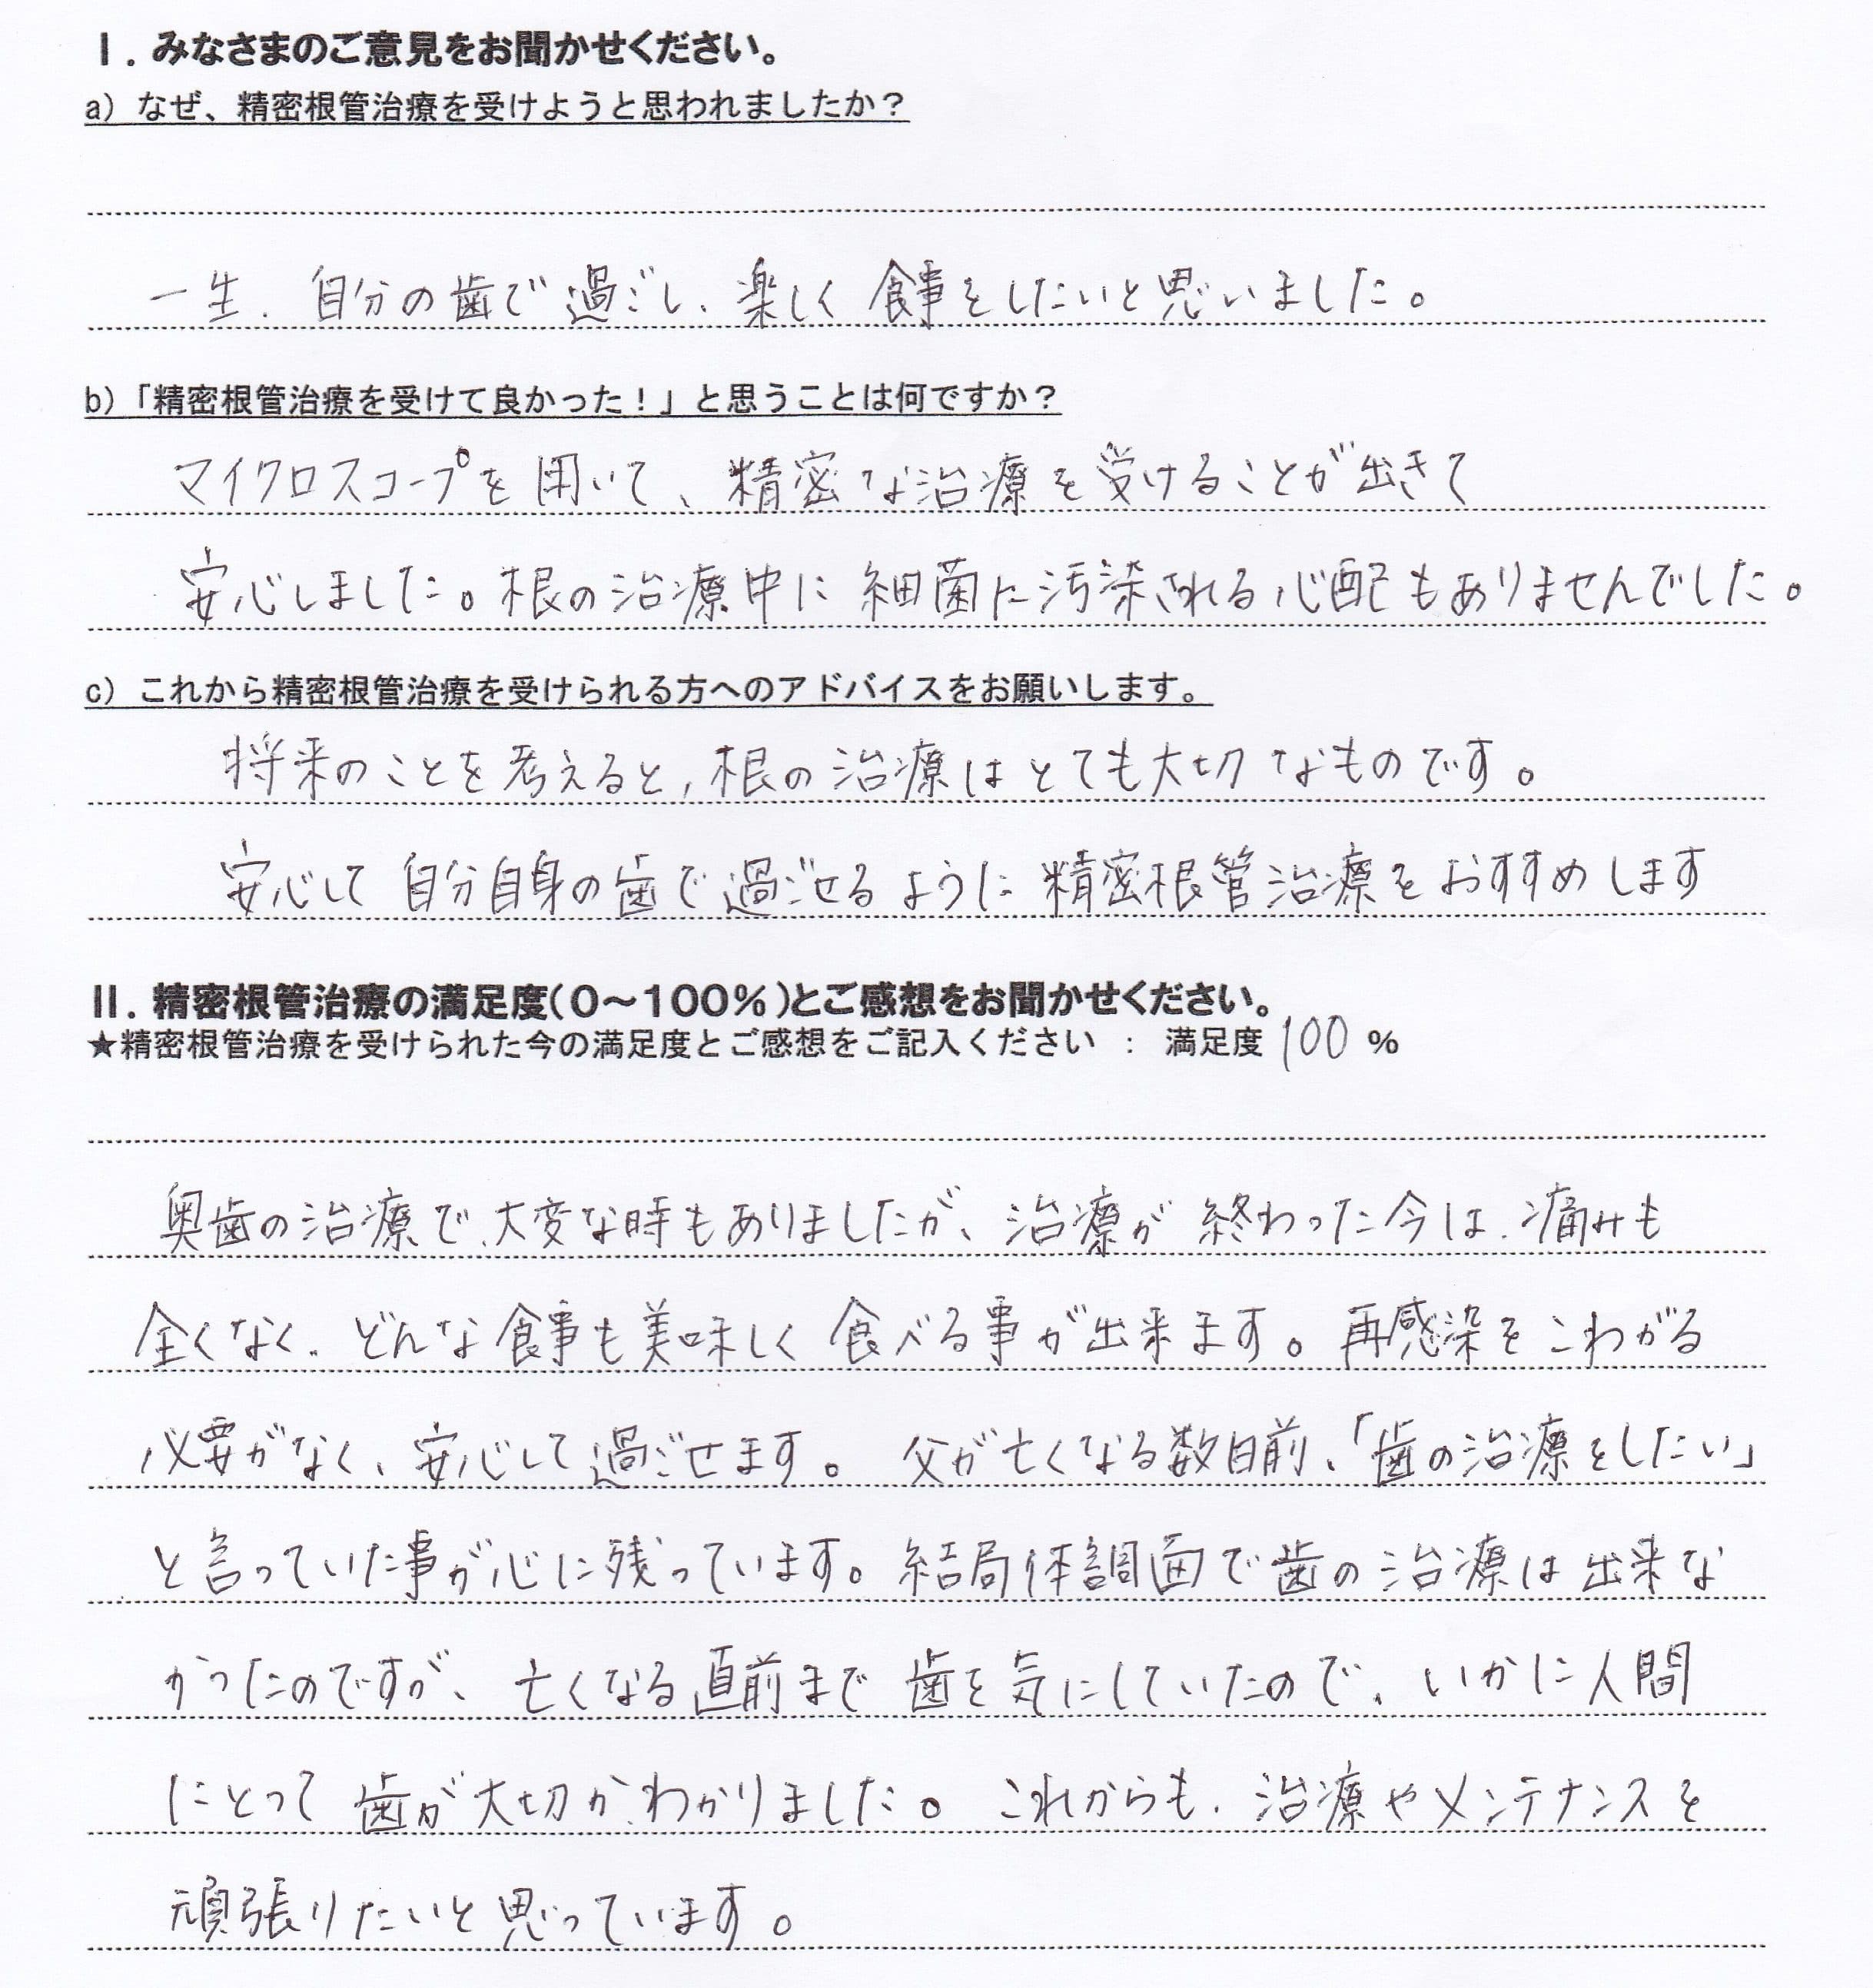 I．みなさまのご意見をお聞かせください。
a）なぜ、精密根管治療を受けようと思われましたか？
一生、自分の歯で過ごし、楽しく食事をしたいと思いました。
b）「精密根管治療を受けて良かった！」と思うことは何ですか？
マイクロスコープを用いて、精密な治療を受けることが出きて
安心しました。根の治療中に細菌に汚染される心配もありませんでした。
c）これから精密根管治療を受けられる方へのアドバイスをお願いします。
将来のことを考えると、根の治療はとても大切なものです。
安心して自分自身の歯で過ごせるように精密根管治療をおすすめします
II．精密根管治療の満足度（0～100％）とご感想をお聞かせください。
★精密根管治療を受けられた今の満足度とご感想をご記入ください ： 満足度 100 ％
奥歯の治療で、大変な時もありましたが、治療が終わった今は、痛みも
全くなく、どんな食事も美味しく食べる事が出来ます。再感染をこわがる
必要がなく、安心して過ごせます。父が亡くなる数日前、「歯の治療をしたい」
と言っていた事が心に残っています。結局体調面で歯の治療は出来な
かったのですが、亡くなる直前まで歯を気にしていたので、いかに人間
にとって歯が大切か、わかりました。これからも、治療やメンテナンスを
頑張りたいと思っています。